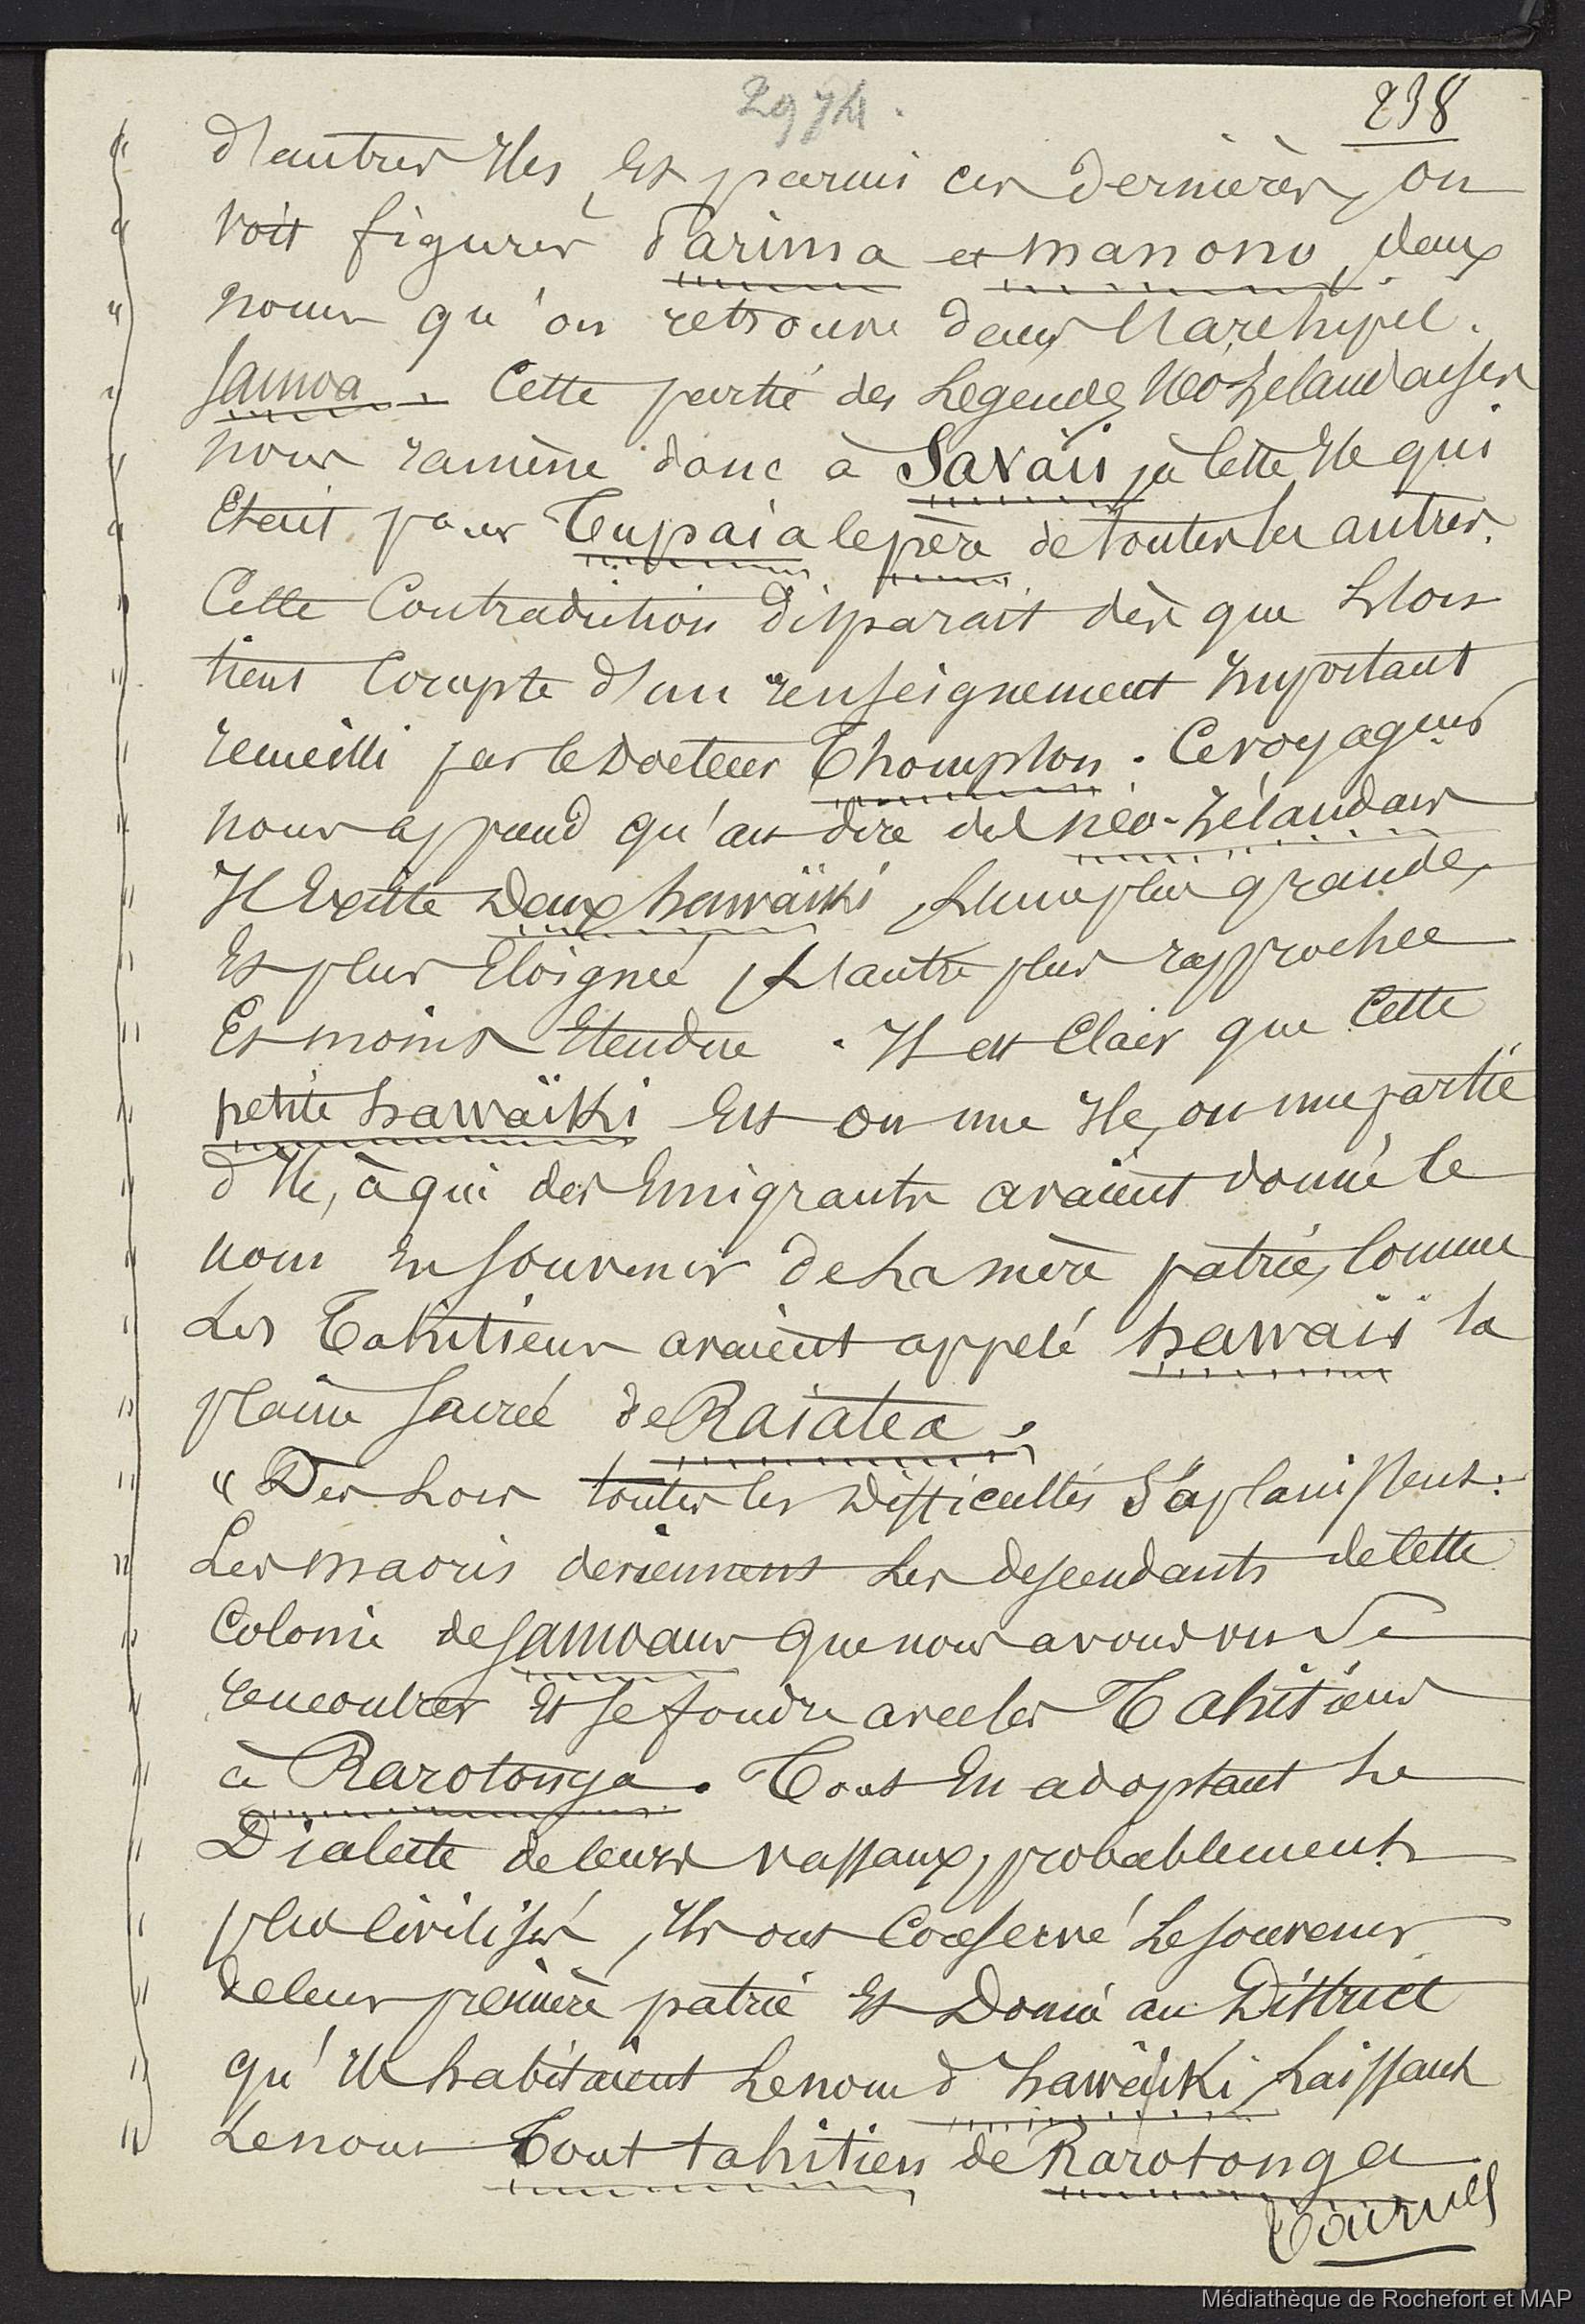 2974.
238
d'autres Iles, Et parmi ces dernières, on
voit figurer Parima et manono, deux
noms qu'on retrouve dans l'archipel.
Samoa. Cette partie des Légendes Néo-Zélandaises
nous ramène donc à Savaïi, à Cette Ile qui
Etait pour Tupaia le père de toutes les autres.
Cette Contradiction disparait dès que L'on
tient Compte d'un renseignement Important
recueilli par le Docteur Thompson. Ce voyageur
nous apprend qu'au dire des néo-zélandais
Il Existe Deux hawaïki, L'une plus grande,
Et plus Eloignée, L'autre plus rapprochée
Et moins Etendue. Il est Clair que Cette
petite hawaïki Est ou une Ile, ou une partie
d'Ile, à qui des Emigrants avaient donné le
nom En souvenir de La mère patrie, Comme
Les Tahitiens avaient appelé hawaii la
plaine Sacrée de Raiatea.
" Dès Lors toutes les Difficultés S'aplanissent.
Les maoris deviennent Les descendants de Cette
Colonie de Samoans que nous avons vu Se
rencontrer Et se fondre avec les Tahitiens
à Rarotonga. Tout En adoptant Le
Dialecte de leurs vassaux, probablement
plus Civilisés, Ils ont Conservé Le souvenir
de leur première patrie Et Donné au District
qu'Ils habitaient Le nom d'hawaïki, Laissant
Le nom Tout tahitien de Rarotonga
Tournes
Médiathèque de Rochefort et MAP